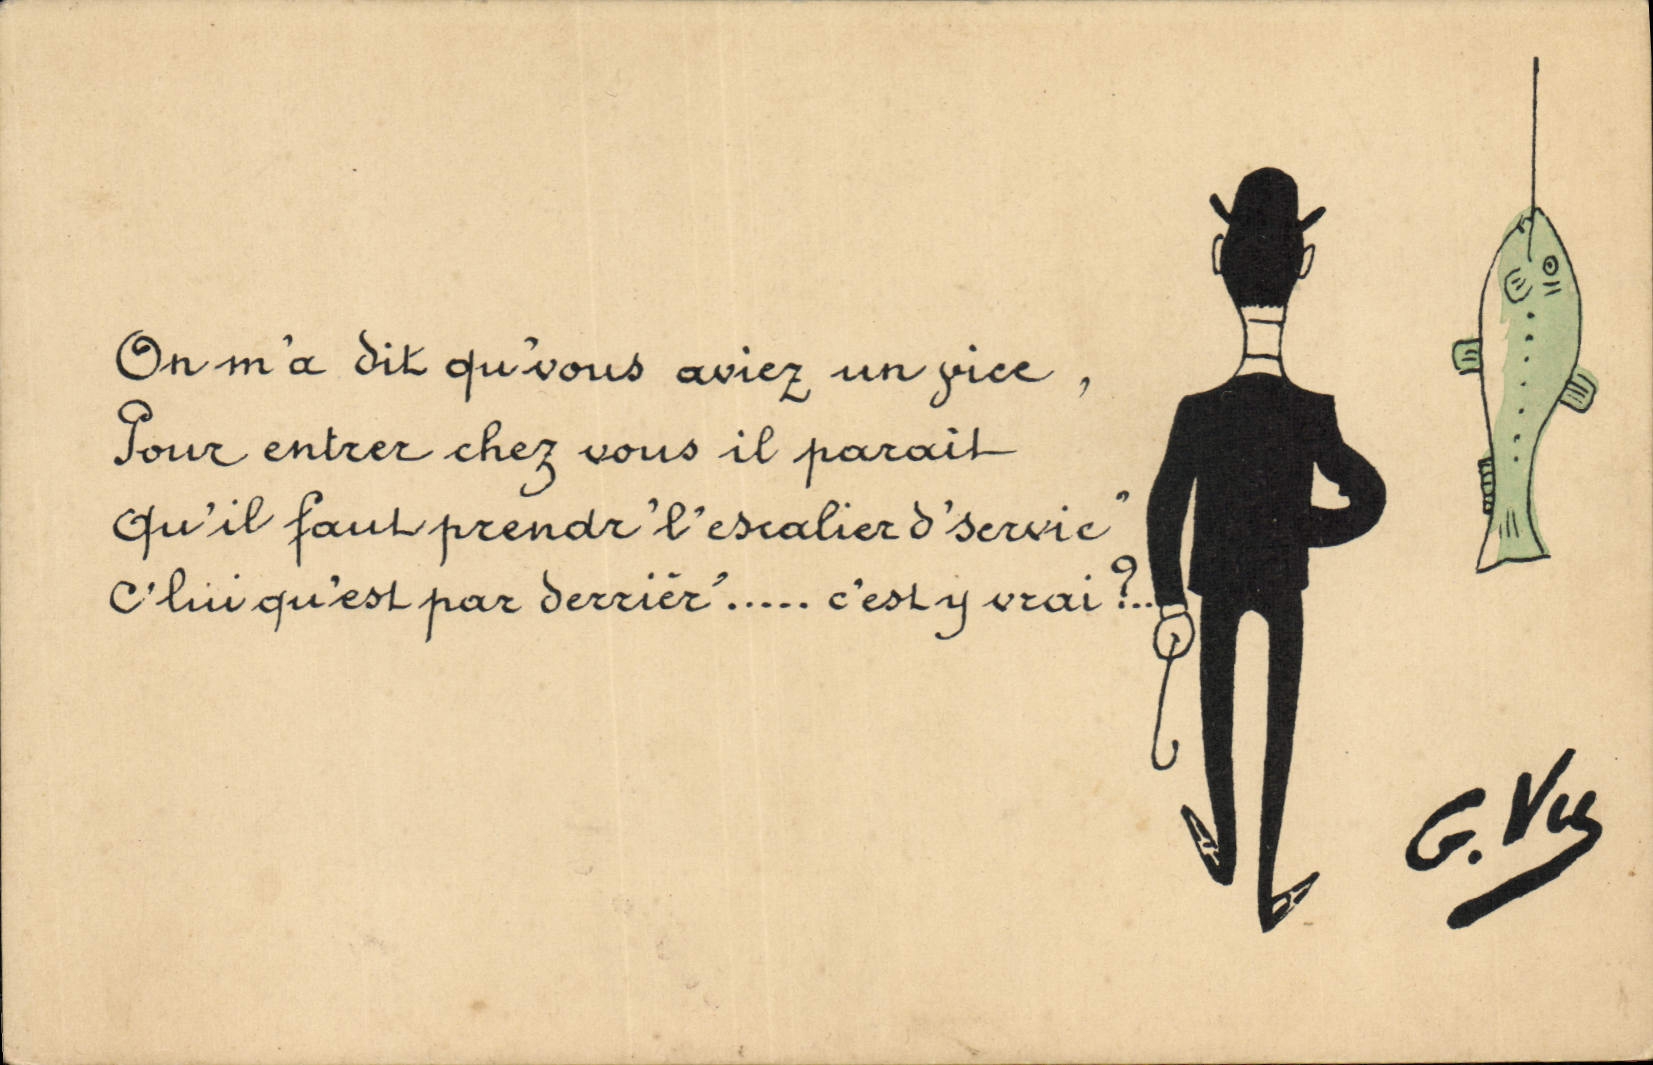 On m'a dit qu'vous aviez un vice,
Pour entrer chez vous il parait
Qu'il faut prendr' l'escalier d'servic'
C'lui qu'est par derrièr'..... c'est y vrai ?..
G. Vys